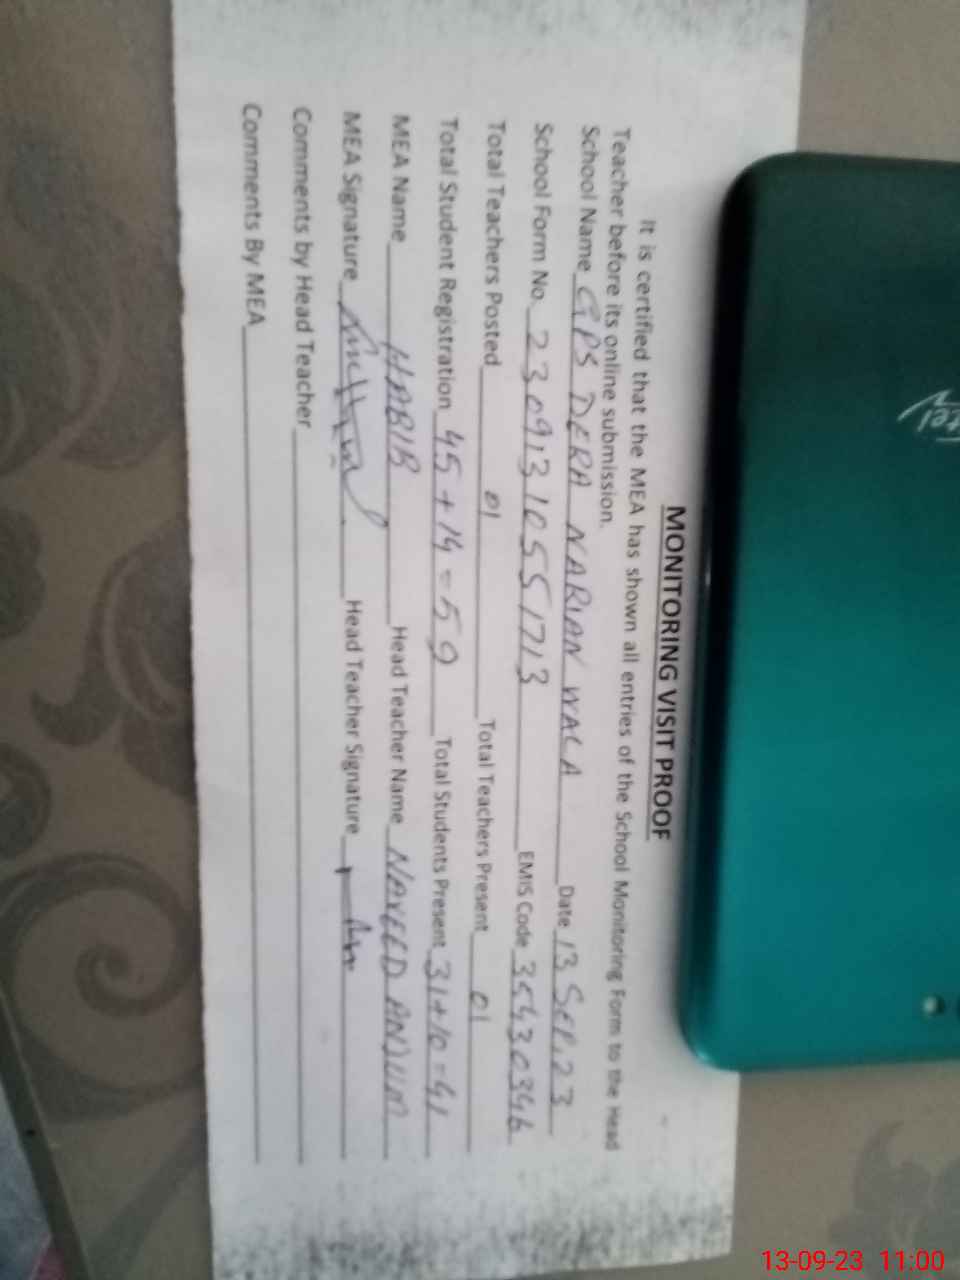 itel
MONITORING VISIT PROOF
It is certified that the MEA has shown all entries of the School Monitoring Form to the Head
Teacher before its online submission.
School Name GPS DERA NARIAN WALA Date 13 SEP, 23
School Form No. 23091310551713 EMIS Code 35430346
Total Teachers Posted 01 Total Teachers Present 01
Total Student Registration 45 + 14 = 59 Total Students Present 31+10=41
MEA Name HABIB Head Teacher Name NAVEED ANJUM
MEA Signature Head Teacher Signature
Comments by Head Teacher
Comments By MEA
13-09-23 11:00